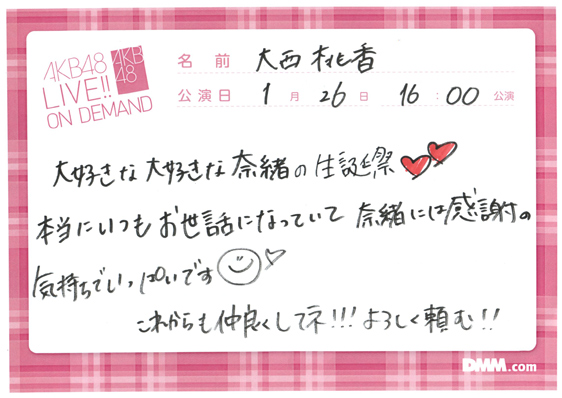 AKB48
LIVE!!
ON DEMAND
AKB
48
名前 大西桃香
公演日 1月26日 16:00公演
大好きな大好きな奈緒の生誕祭
本当にいつもお世話になっていて 奈緒には感謝の
気持ちでいっぱいです
これからも仲良くしてネ!!! よろしく頼む!!
DMM.com